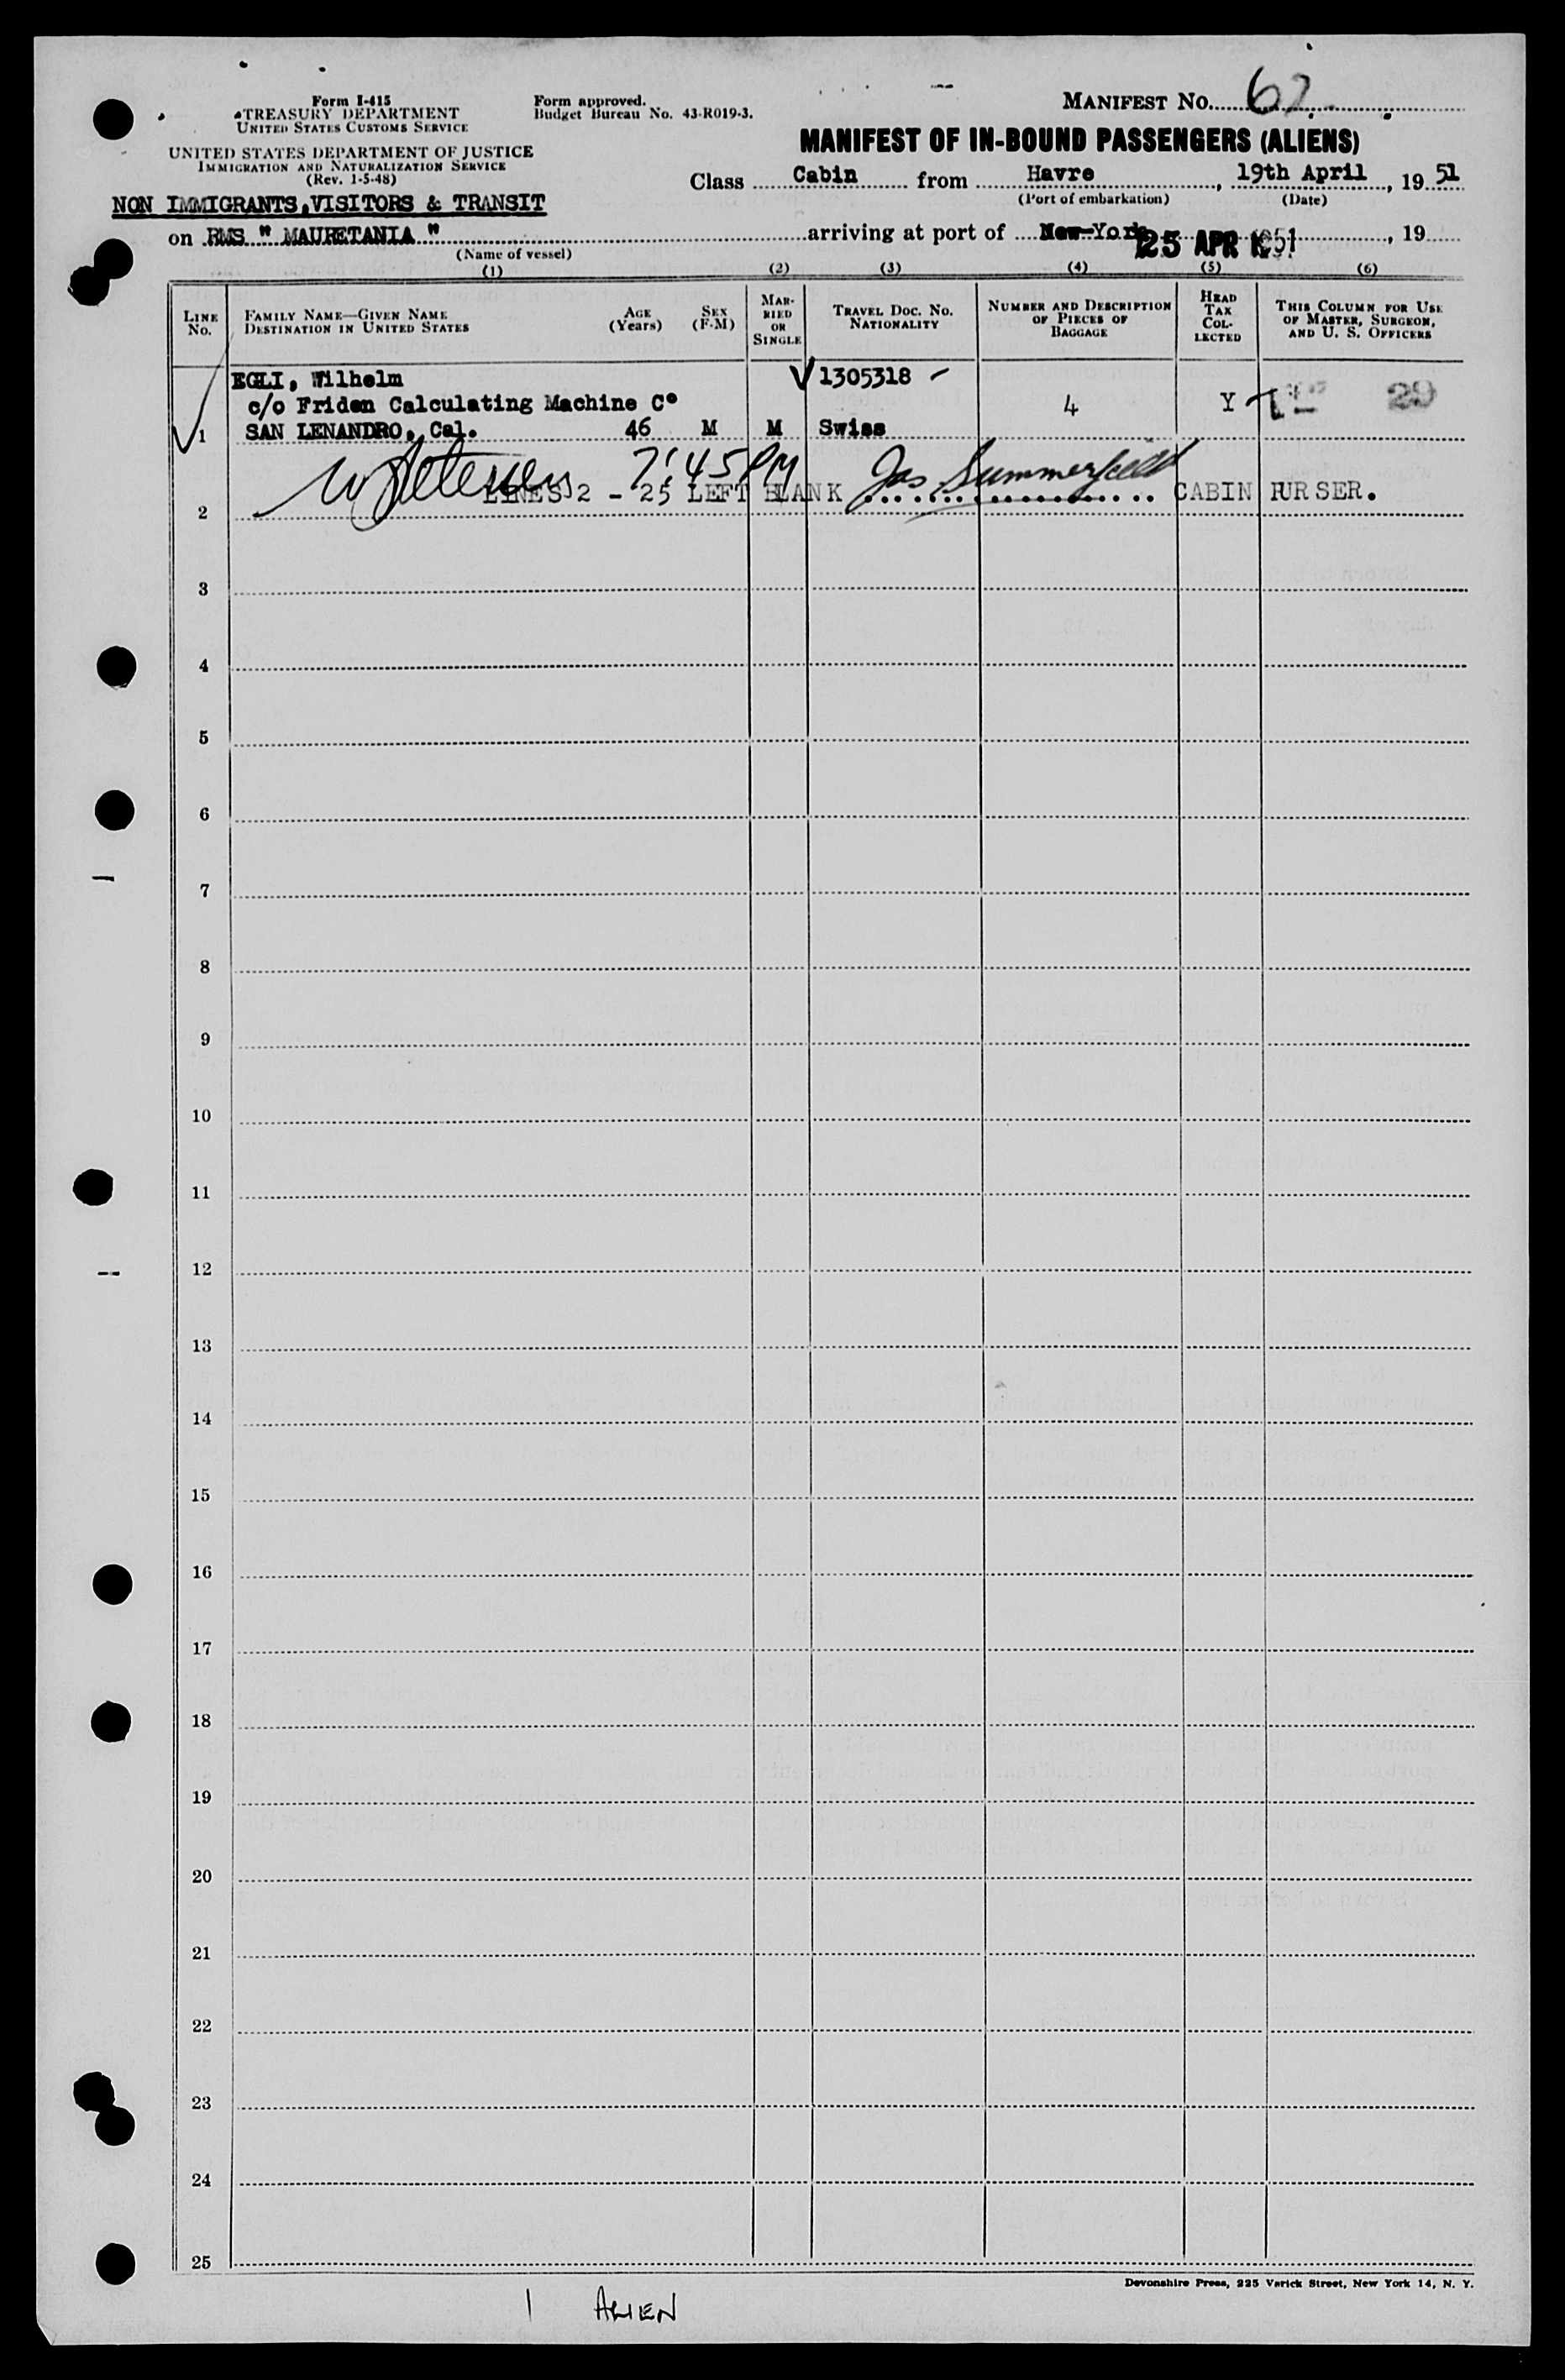 Form I-415
TREASURY DEPARTMENT
UNITED STATES CUSTOMS SERVICE
UNITED STATES DEPARTMENT OF JUSTICE
IMMIGRATION AND NATURALIZATION SERVICE
(Rev. 1-5-48)
Form approved.
Budget Bureau No. 43-R019-3.
MANIFEST NO. 62
MANIFEST OF IN-BOUND PASSENGERS (ALIENS)
Class Cabin from Havre, 19th April, 19 51
(Port of embarkation) (Date)
NON IMMIGRANTS, VISITORS & TRANSIT
on RMS " MAURETANIA " arriving at port of New York 25 APR 1951, 19
(Name of vessel)
(1) (2) (3) (4) (5) (6)
LINE No. FAMILY NAME—GIVEN NAME DESTINATION IN UNITED STATES AGE (Years) SEX (F-M) MARRIED OR SINGLE TRAVEL DOC. NO. NATIONALITY NUMBER AND DESCRIPTION OF PIECES OF BAGGAGE HEAD TAX COLLECTED THIS COLUMN FOR USE OF MASTER, SURGEON, AND U. S. OFFICERS
EGLI, Wilhelm 1305318
c/o Friden Calculating Machine Cº 4 Y 29
1 SAN LENANDRO, Cal. 46 M M Swiss
7:45 PM
2 LINES 2 - 25 LEFT BLANK Jas Summerfield CABIN PURSER.
3
4
5
6
7
8
9
10
11
12
13
14
15
16
17
18
19
20
21
22
23
24
25
Devonshire Press, 225 Varick Street, New York 14, N. Y.
1 ALIEN